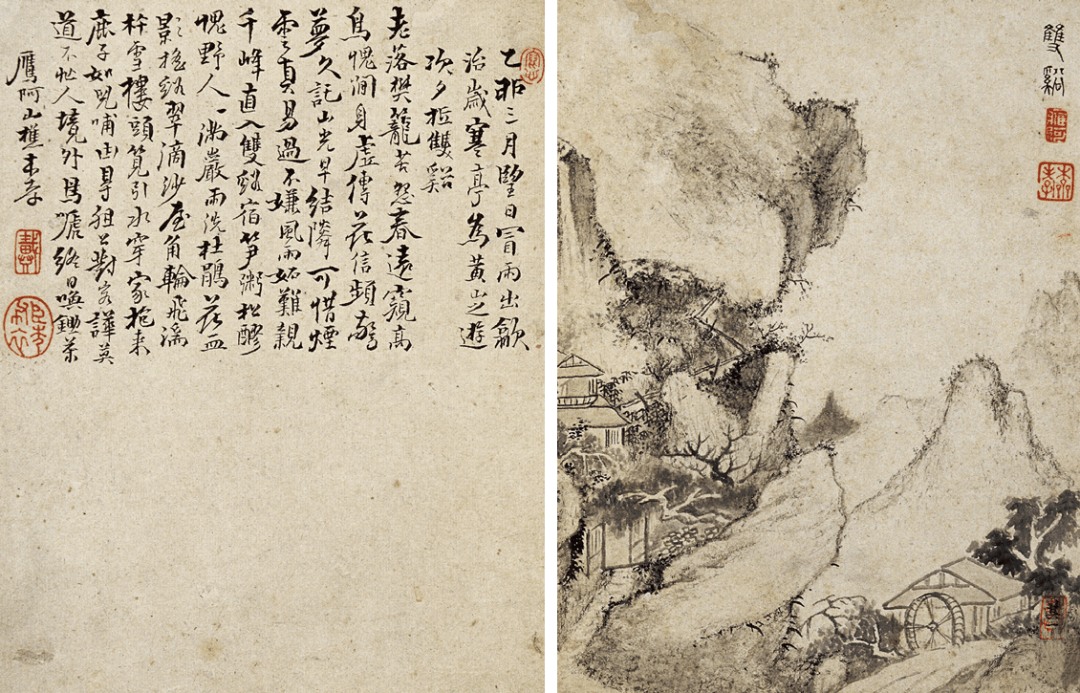 乙卯三月朢日冒雨出歙
治歲寒亭為黃山之遊
次夕抵雙谿
老落樊籠苦怨春遠窺高
鳥愧澗身虛傳花信頻驚
夢久記山光早結隣可惜煙
雲真易過不嫌風雨妬難親
千峰直入雙谿宿笋粥松醪
愧野人 滿巖雨洗杜鵑花血
影搖谿翠滴沙屋角輪飛湍
杵雪樓頭筧引水穿家抱來
鹿子如兒哺 狙公對客譁莫
道不忙人境外 終日喚鋤茶
鷹阿山樵本孝
雙谿
本孝